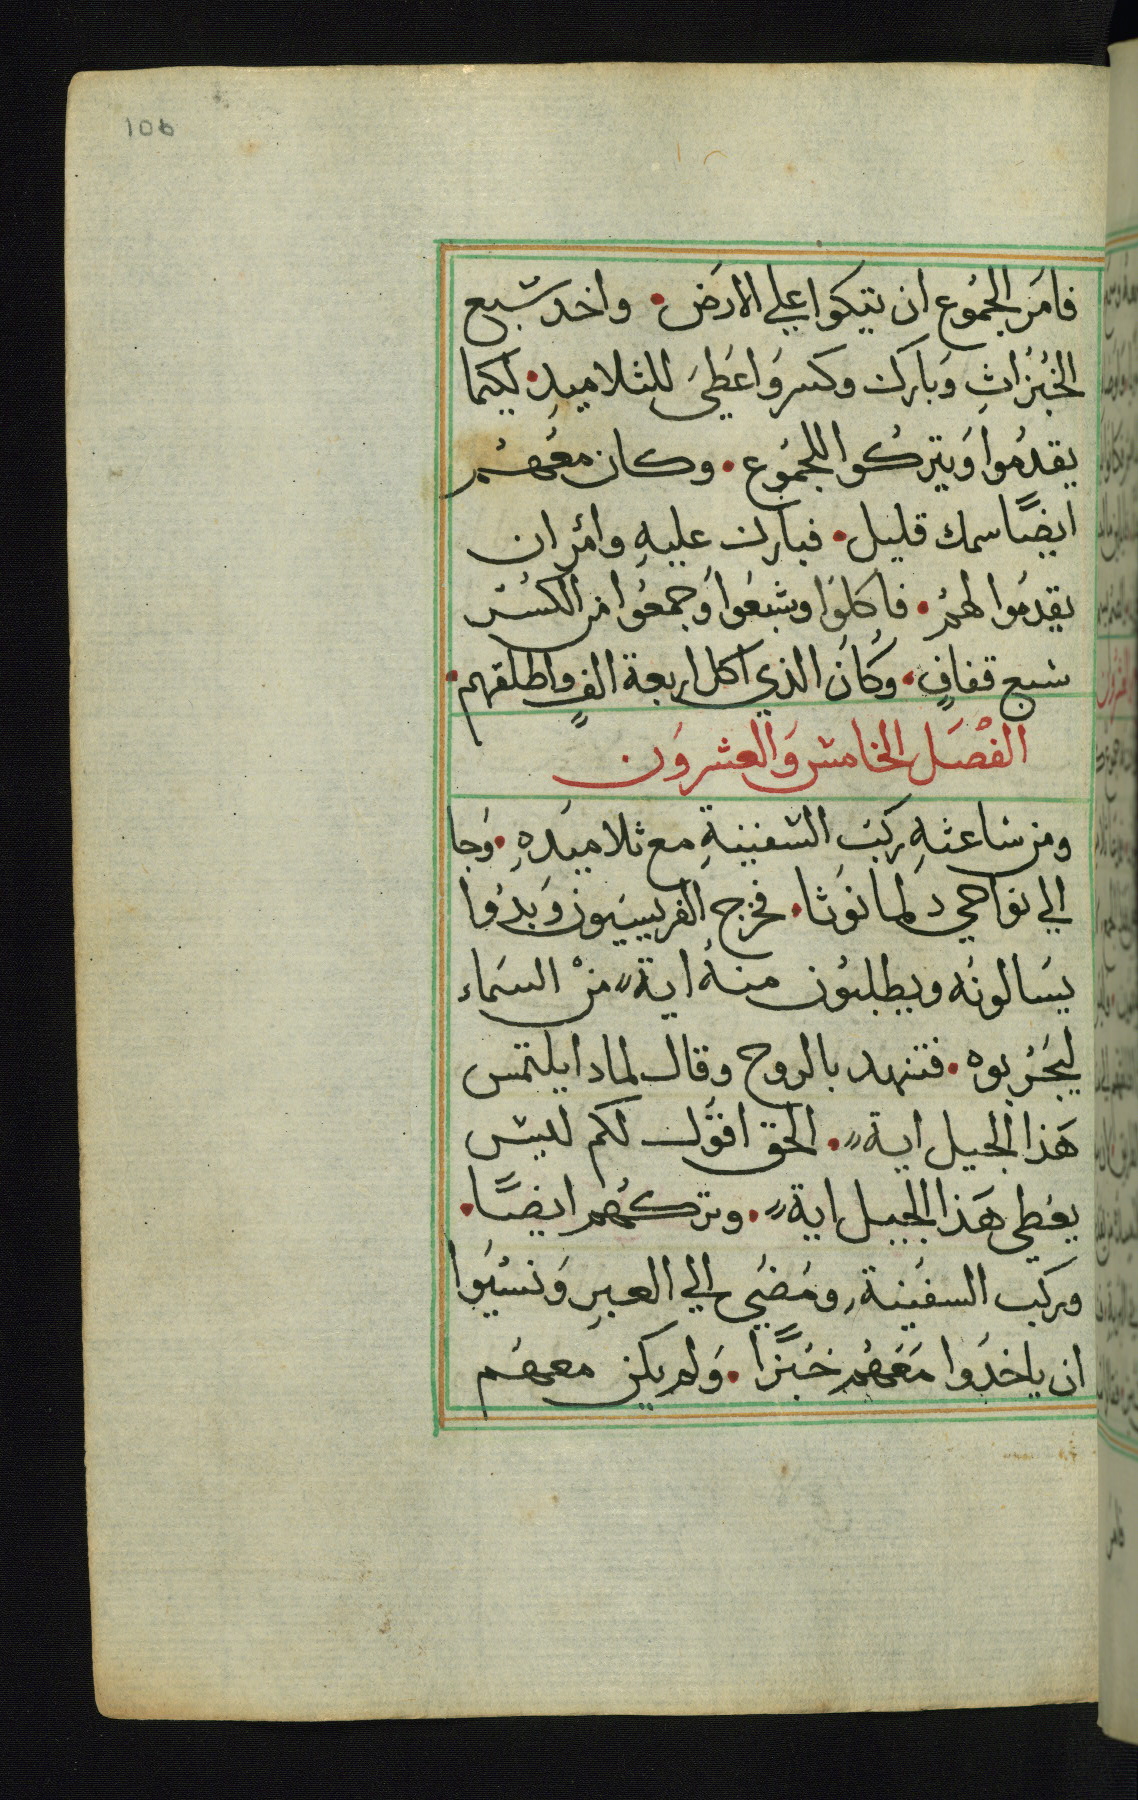 106
فامَر الجمُوع ان يتيكوا علي الارَض • واخد سَبع
الخبُزاثِ وَبَاركَ وكسر وَاعَطيَ للثلاميدِ • لكيما
يقدمُوا وَيتركُوا للجموُع • وكان معَهُم
ايضًا سمك قليل • فبارك عليهِ وامُر ان
يقدمُوا لهمُ • فاكلوَا وشبعَوا وَجمعُوا من الكسُر
سبع قفافٍ • وَكانَ الذي اكل اربعة الفٍ واطلقهم •
الفصَل الخامسَ وَالعشروَن
ومن ساعثهِ ركبَ السفينةِ مع ثلاميدَهِ • وَجا
الي نواحي دَلمانوَثا • فخرج الفريسيَون وَبدَوُا
يسَالونَه ويطلبوُن منهُ اية من السَماء
ليجَرُبوه • فتنهد بالروح وقال لمادا يلتمس
هَذا الجيل اية • الحق اقوَل لكم ليسَ
يعَطي هَذا الجيل اية • وتركهُم ايضًا •
وركب السفيَنة, ومَضيَ الي العبرِ وَنسيُوا
ان ياخدَوا مَعَهُم خبزًا • وَلم يكن معهَم